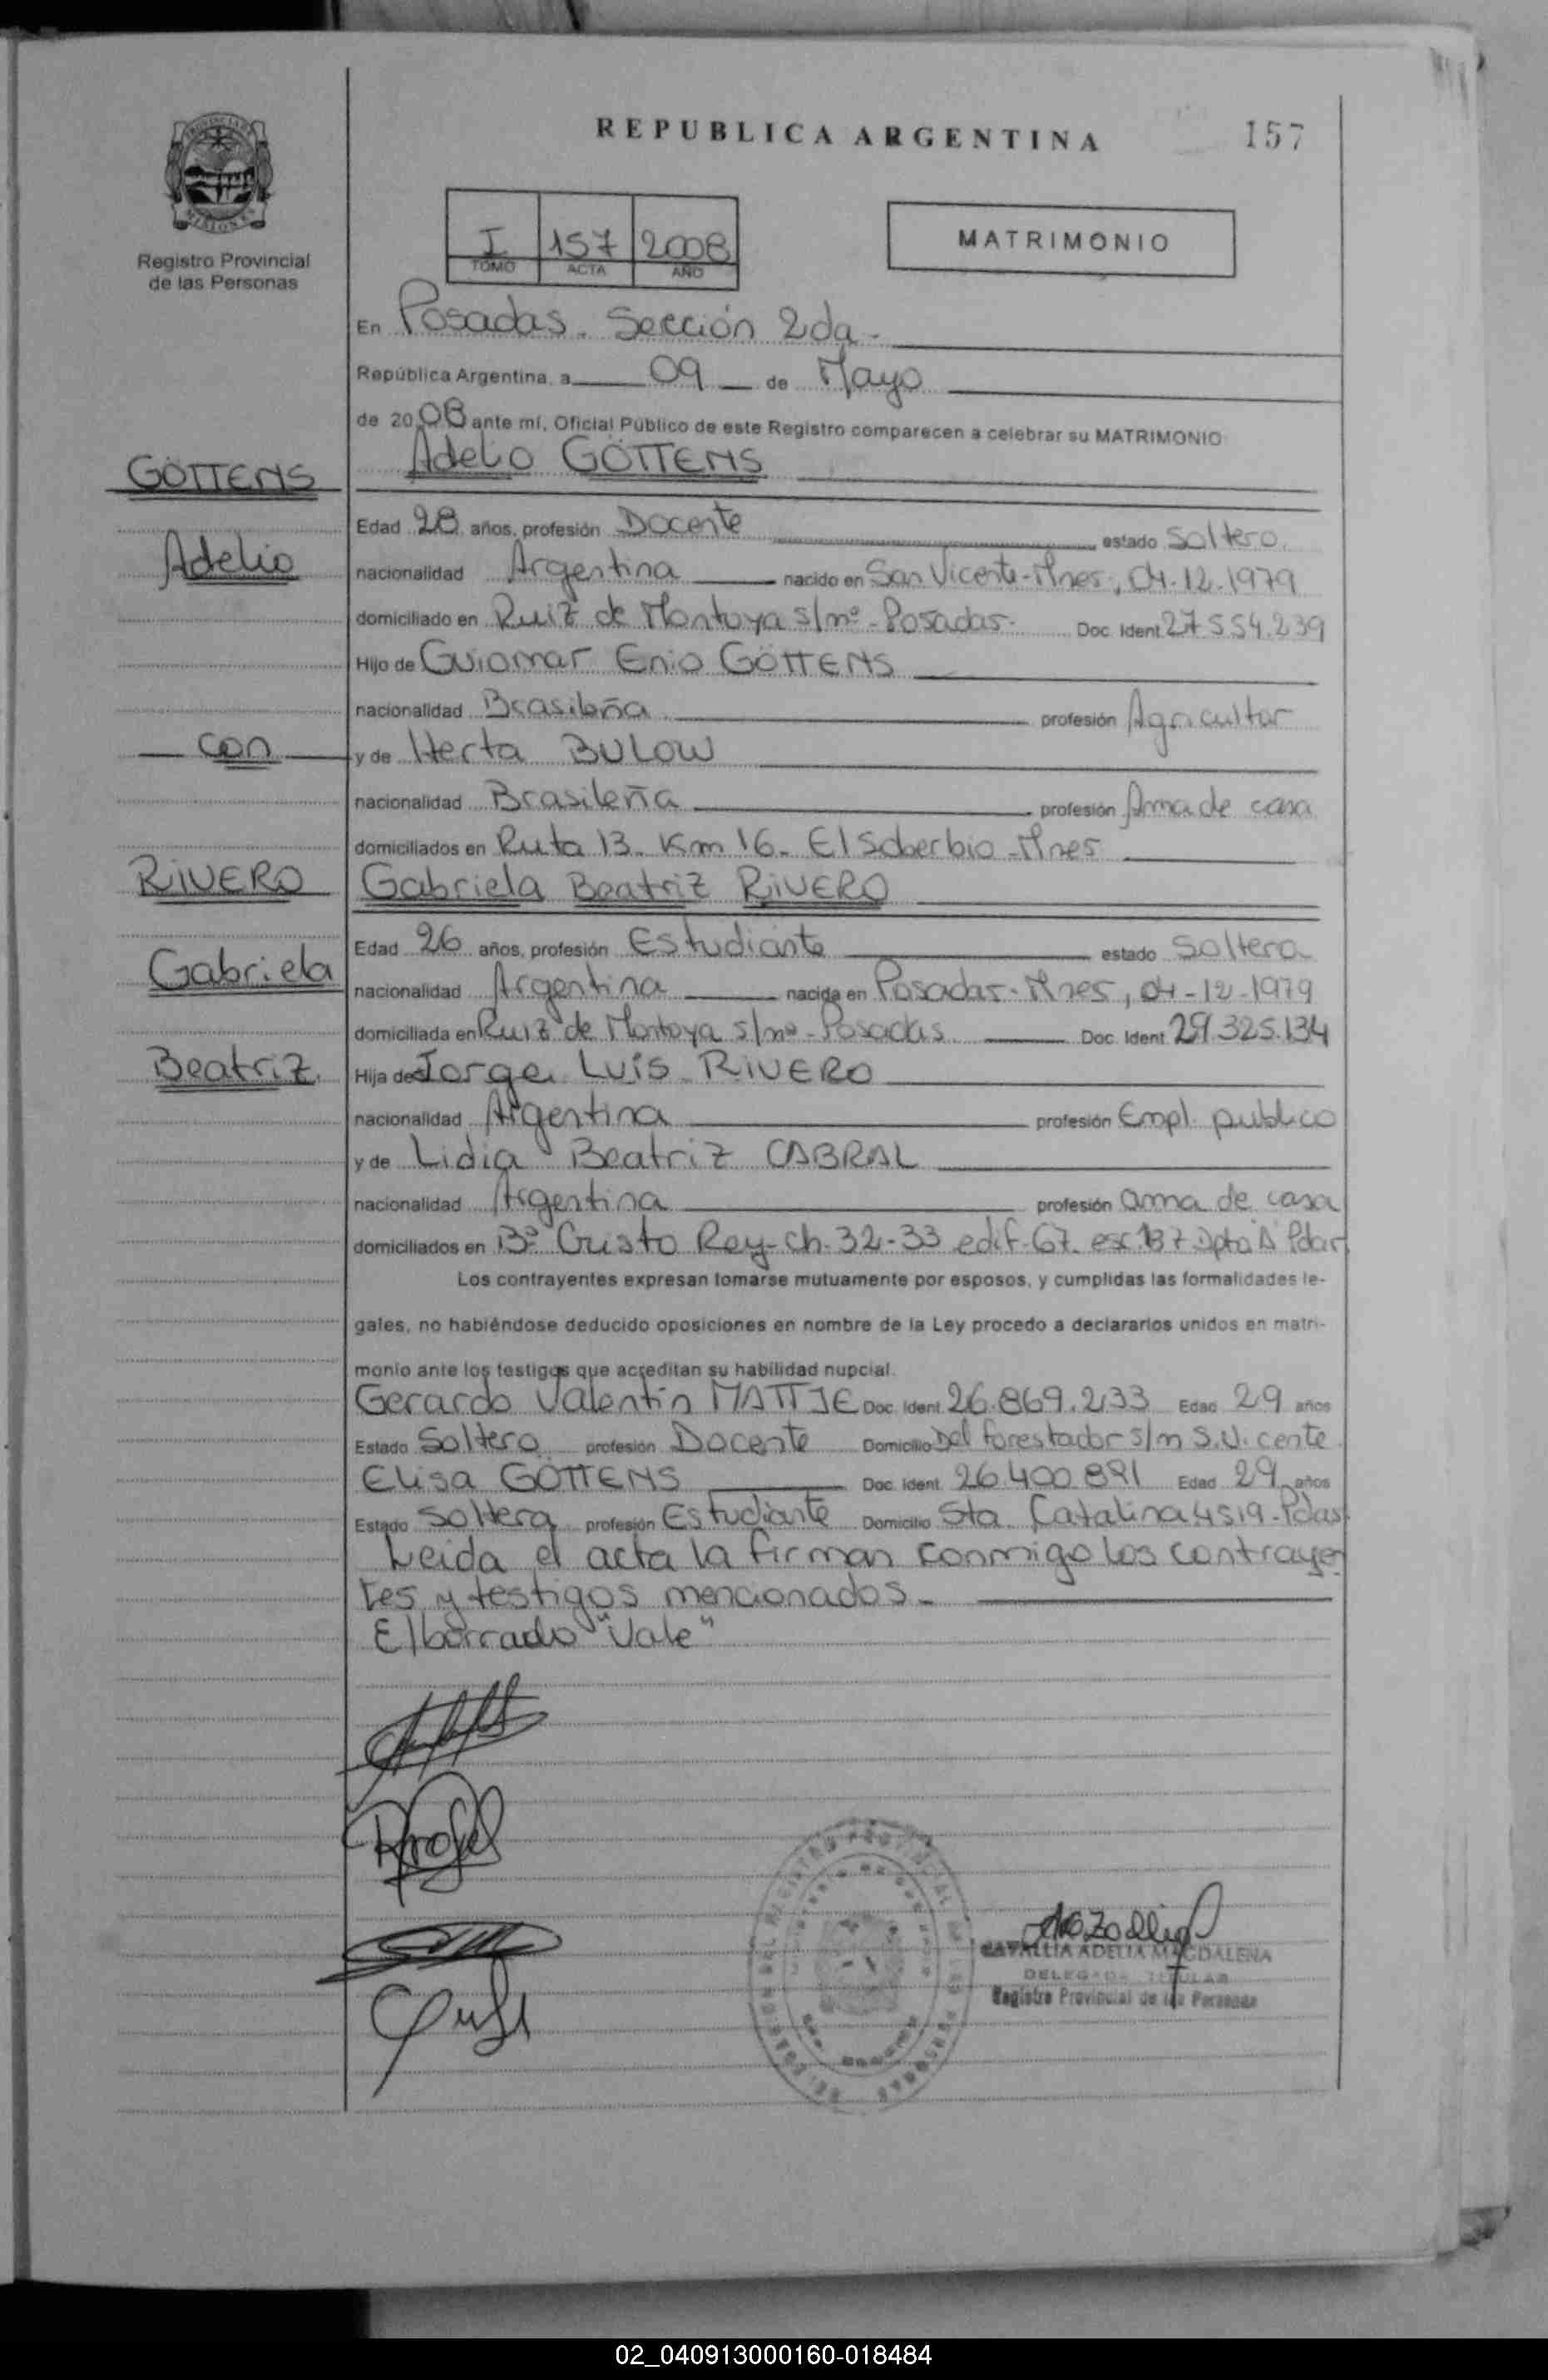 REPUBLICA ARGENTINA
157
Registro Provincial
de las Personas
I 157 2008
TOMO ACTA AÑO
MATRIMONIO
En Posadas. Sección 2da.
República Argentina, a 09 de Mayo
de 2008 ante mí, Oficial Público de este Registro comparecen a celebrar su MATRIMONIO
GÖTTENS
Adelio GÖTTENS
Edad 28 años, profesión Docente estado Soltero.
Adelio
nacionalidad Argentina nacido en San Vicente-Mnes, 04.12.1979
domiciliado en Ruiz de Montoya s/nº - Posadas. Doc. Ident 27554.239
Hijo de Guiomar Enio GÖTTENS
nacionalidad Brasileña profesión Agricultor
con
y de Herta BULOW
nacionalidad Brasileña profesión Ama de casa
domiciliados en Ruta 13. Km 16. El Soberbio - Mnes
RIVERO
Gabriela Beatriz RIVERO
Edad 26 años, profesión Estudiante estado Soltera
Gabriela
nacionalidad Argentina nacida en Posadas - Mnes, 04-12-1979
domiciliada en Ruiz de Montoya s/nº - Posadas Doc. Ident 29.325.134
Beatriz.
Hija de Jorge Luis RIVERO
nacionalidad Argentina profesión Empl. publico
y de Lidia Beatriz CABRAL
nacionalidad Argentina profesión ama de casa
domiciliados en Bº Cristo Rey - ch. 32-33 edif. 67. esc. 137 Dpto Pdas.
Los contrayentes expresan tomarse mutuamente por esposos, y cumplidas las formalidades le-
gales, no habiéndose deducido oposiciones en nombre de la Ley procedo a declararlos unidos en matri-
monio ante los testigos que acreditan su habilidad nupcial.
Gerardo Valentín MATTJE Doc. Ident. 26.869.233 Edad 29 años
Estado Soltero profesión Docente Domicilio Del forestador s/n S.Vicente.
Elisa GÖTTENS Doc. Ident. 26.400.891 Edad 29 años
Estado Soltera profesión Estudiante Domicilio Sta. Catalina 4519 - Pdas.
Leida el acta la firman conmigo los contrayen
tes y testigos mencionados.
El borrado "Vale"
CAVALLIA ADELIA MAGDALENA
DELEGADA TITULAR
Registro Provincial de las Personas
02_040913000160-018484